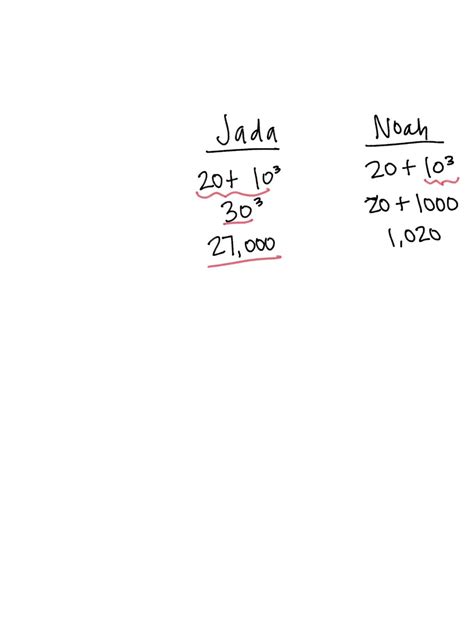 Jada
20+ 10³
30³
27,000
Noah
20 + 10³
20 + 1000
1,020